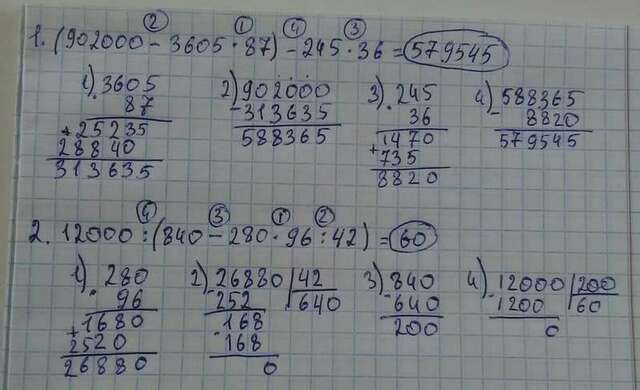 ② ① ④ ③
1. (902000 - 3605 · 87) - 245 · 36 = 579545
1) 3605 2) 902000 3) 245 4) 588365
· 87 - 313635 · 36 - 8820
+ 25235 588365 1470 579545
28840 + 735
313635 8820
④ ③ ① ②
2. 12000 : (840 - 280 · 96 : 42) = 60
1) 280 2) 26880 | 42 3) 840 4) 12000 | 200
· 96 - 252 640 - 640 - 1200 60
+ 1680 168 200 0
2520 - 168
26880 0